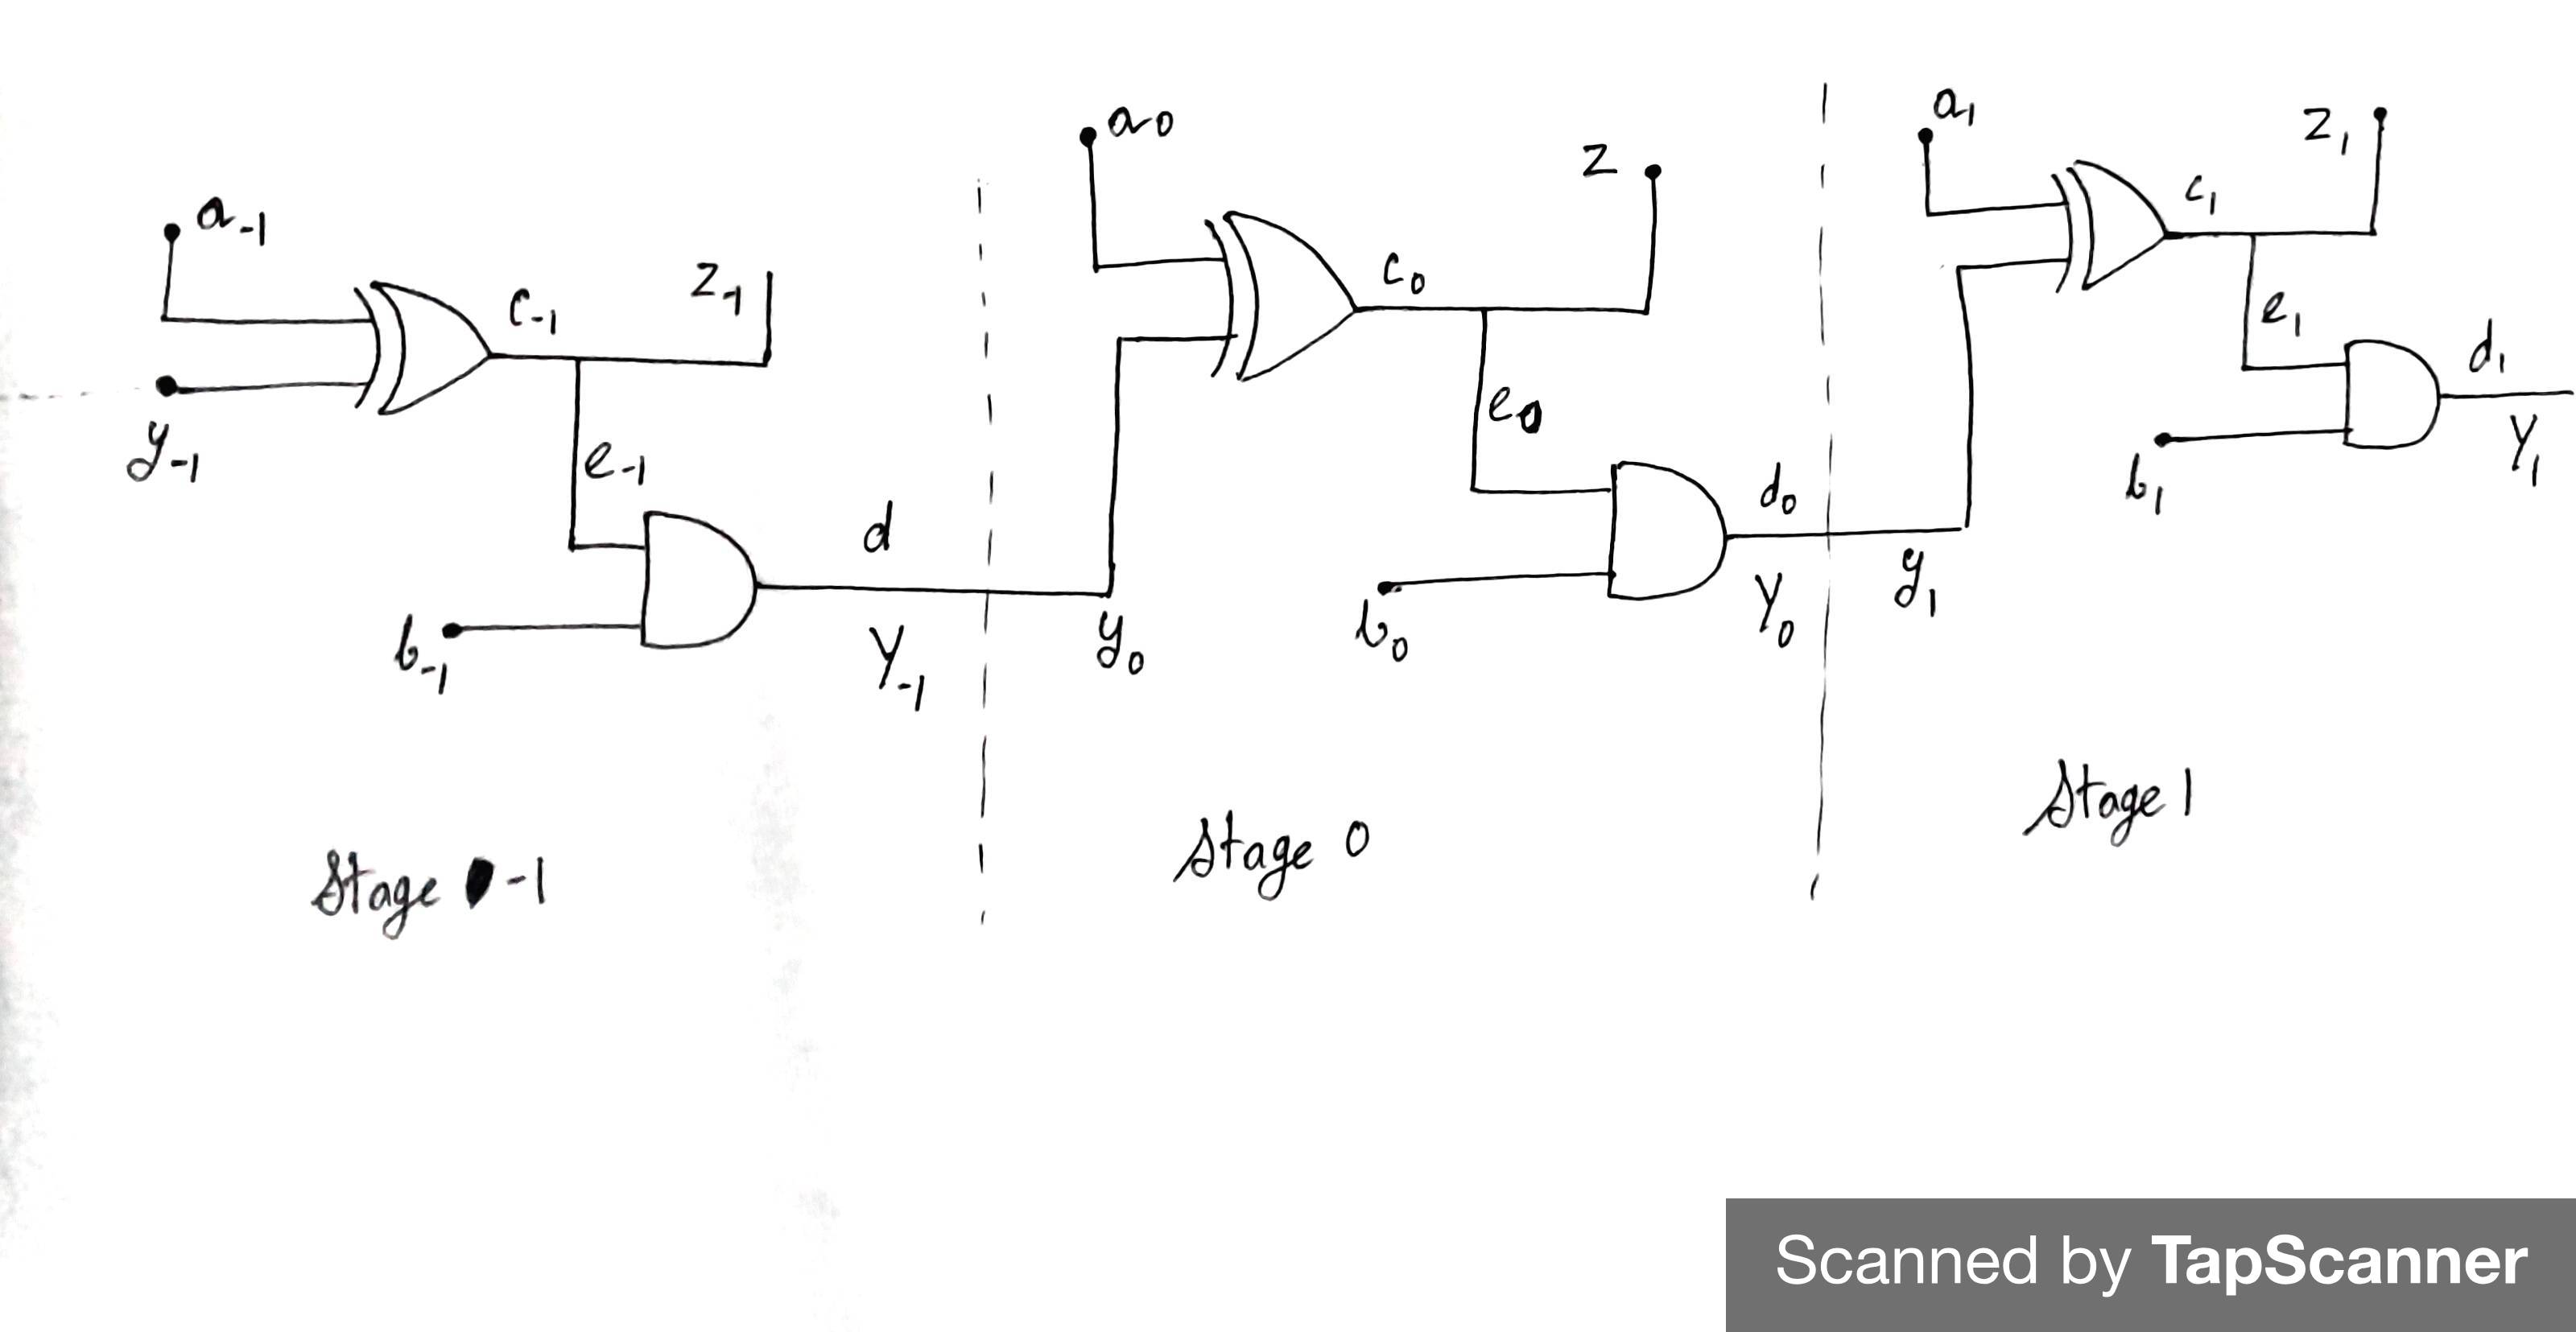 a-1
z-1
c-1
y-1
e-1
d
b-1
Y-1
Stage -1
a0
z
c0
e0
d0
y0
b0
Y0
Stage 0
a1
z1
c1
e1
d1
b1
Y1
y1
Stage 1
Scanned by TapScanner